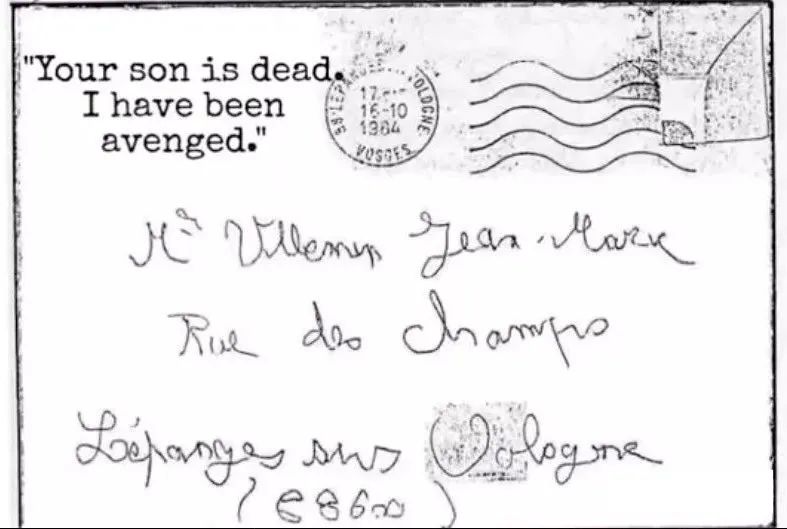 "Your son is dead.
I have been
avenged."
16-10
1984
VOSGES
Mr Villemin Jean-Marie
Rue des Champs
Lépanges sur Vologne
(88600)